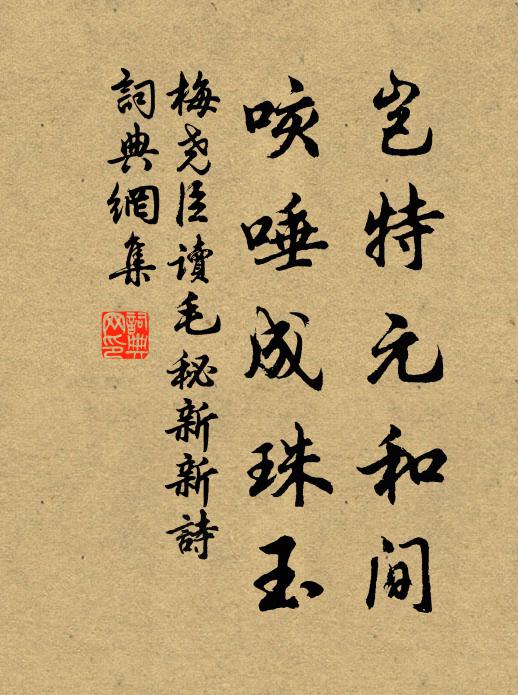 岂特元和间
咳唾成珠玉
梅尧臣讀毛秘新新詩
詞典網集
詞典網印